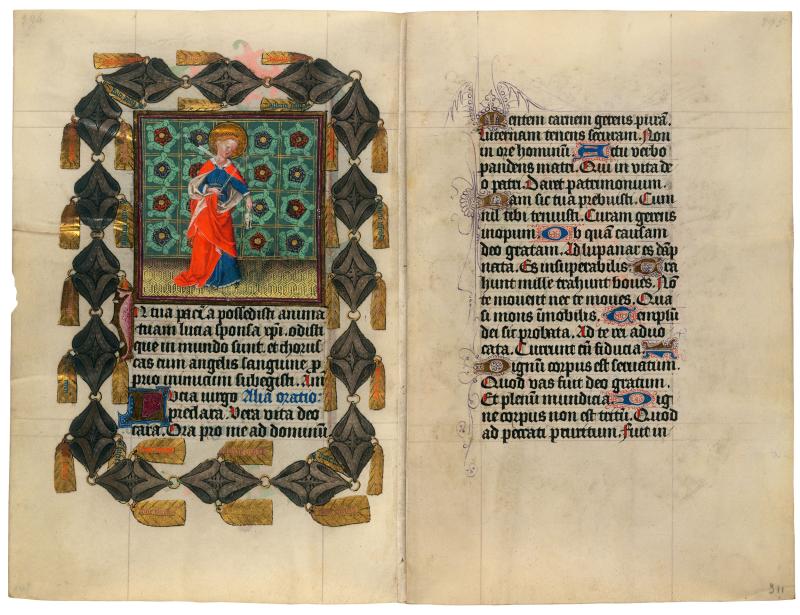 In tua paciẽcia possedisti animã
tuam lucia sponsa xp̃i. odisti
que in mundo sunt. et chorus
cas cum angelis sanguine p̱
prio inimicum subegisti. Añ
Lucia uirgo Alia oratio:
preclara. Vera vita deo
cara. Ora pro me ad dominũ
Mentem carnem gerens purã.
Lucernam tenens securam. Non
in ore hominũ. Actu verbo
pandens matri. Qui in vita de
o patri. Daret patrimonium.
Nam sic tua prebuisti. Cum
nil tibi tenuisti. Curam gerens
inopum. Ob quã causam
deo gratam. Ad lupanar es dãp
nata. Es insuperabilis. Tra
hunt mille trahunt boues. Nõ
te mouent nec te moues. Qua
si mons ĩmobilis. Templũ
dei sic probata. Ad te rei aduo
cata. Currunt cũ fiducia.
Dignũ corpus est seruatum.
Quod vas fuit deo gratum.
Et plenũ mundicia. Dig
ne corpus non est tectũ. Quod
ad peccati Fuit in
311